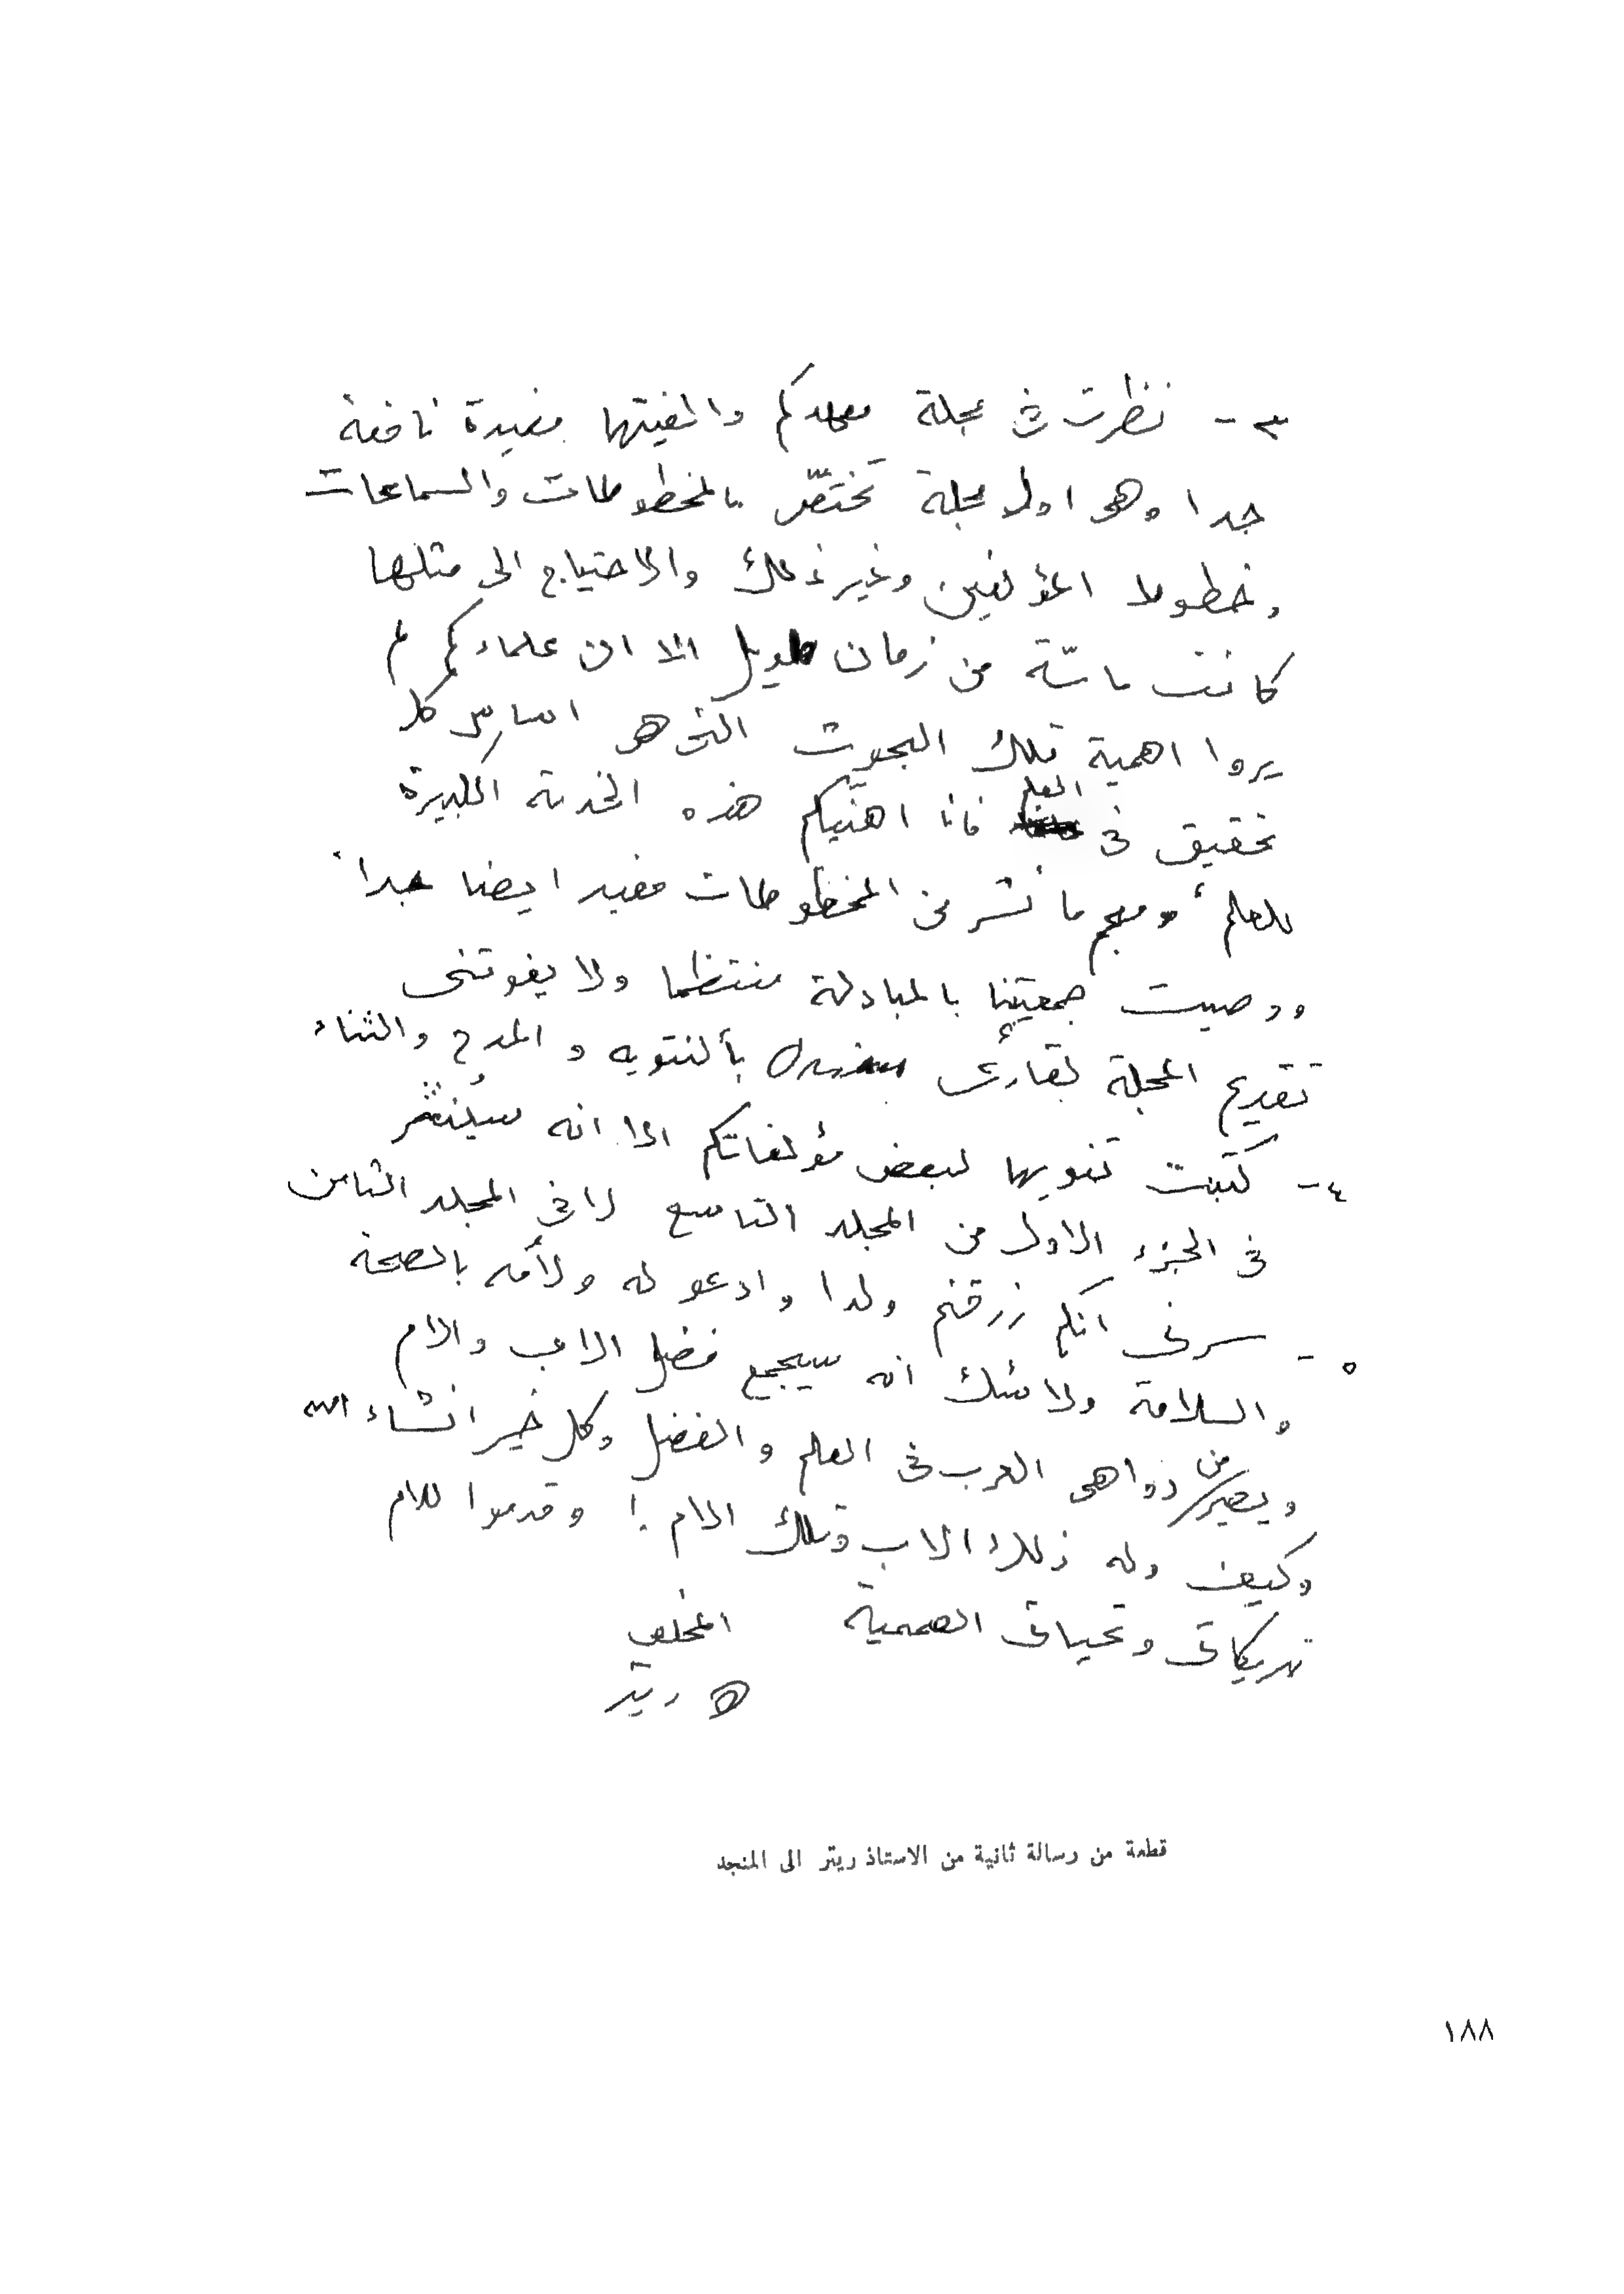 ٣ - نظرت في مجلة معهدكم والفيتها مفيدة نافعة
جدا وهى اول مجلة تختصّ بالمخطوطات والسماعات
وخطوط المؤلفين وغير ذلك والاحتياج الى مثلها
كانت ماسّة من زمان طويل الا ان علماءكم لم
يروا اهمية تلك البحوث التى هى اساس كل
تحقيق فى العلم فانا اهنّيكم هذه الخدمة الكبيرة
للعلم ومعجم ما نُشر من المخطوطات مفيد ايضا جدا
ووصيت جمعيتنا بالمبادلة منتظما ولا يفوتنى
تقديم المجلة لقارئى بألتنويه و المدح والثناء
٤ - كتبت تنويها لبعض مؤلفاتكم الا انه سيُنشر
فى الجزء الاول من المجلد التاسع لا فى المجلد الثامن
٥ - سرنى انكم زرقتم ولدا وادعو له ولأمه بالصحة
والسلامة ولا شك انه سيجمع فضل الاب والام
ويصير من دواهى العرب فى العلم والفضل وكل خير انشاء الله
وكيف وله ذلك الاب وتلك الام ! وقدموا للام
تبريكاتى وتحياتى الصميمية المخلص
ه ريتر
قطعة من رسالة ثانية من الاستاذ ريتر الى المنجد
١٨٨